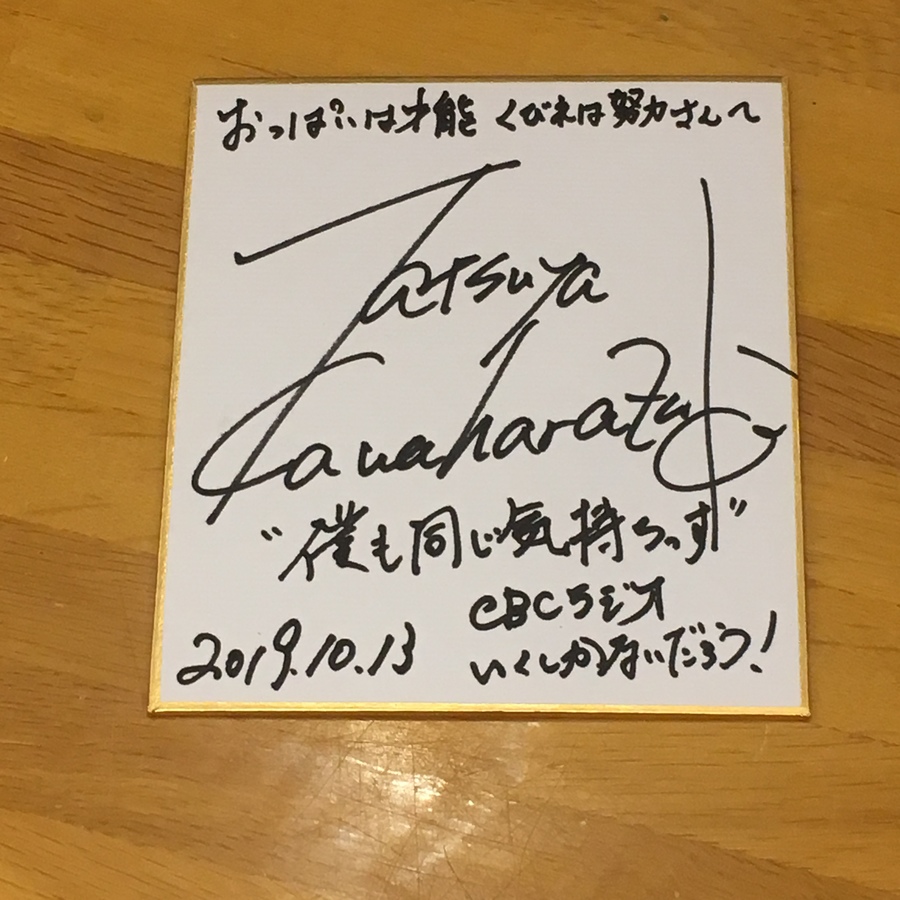 おっぱいは才能 くびれは努力さんへ
Tatsuya
Kawaharazuka
"僕も同じ気持ちっす"
CBCラジオ
いくしかないだろう!
2019.10.13